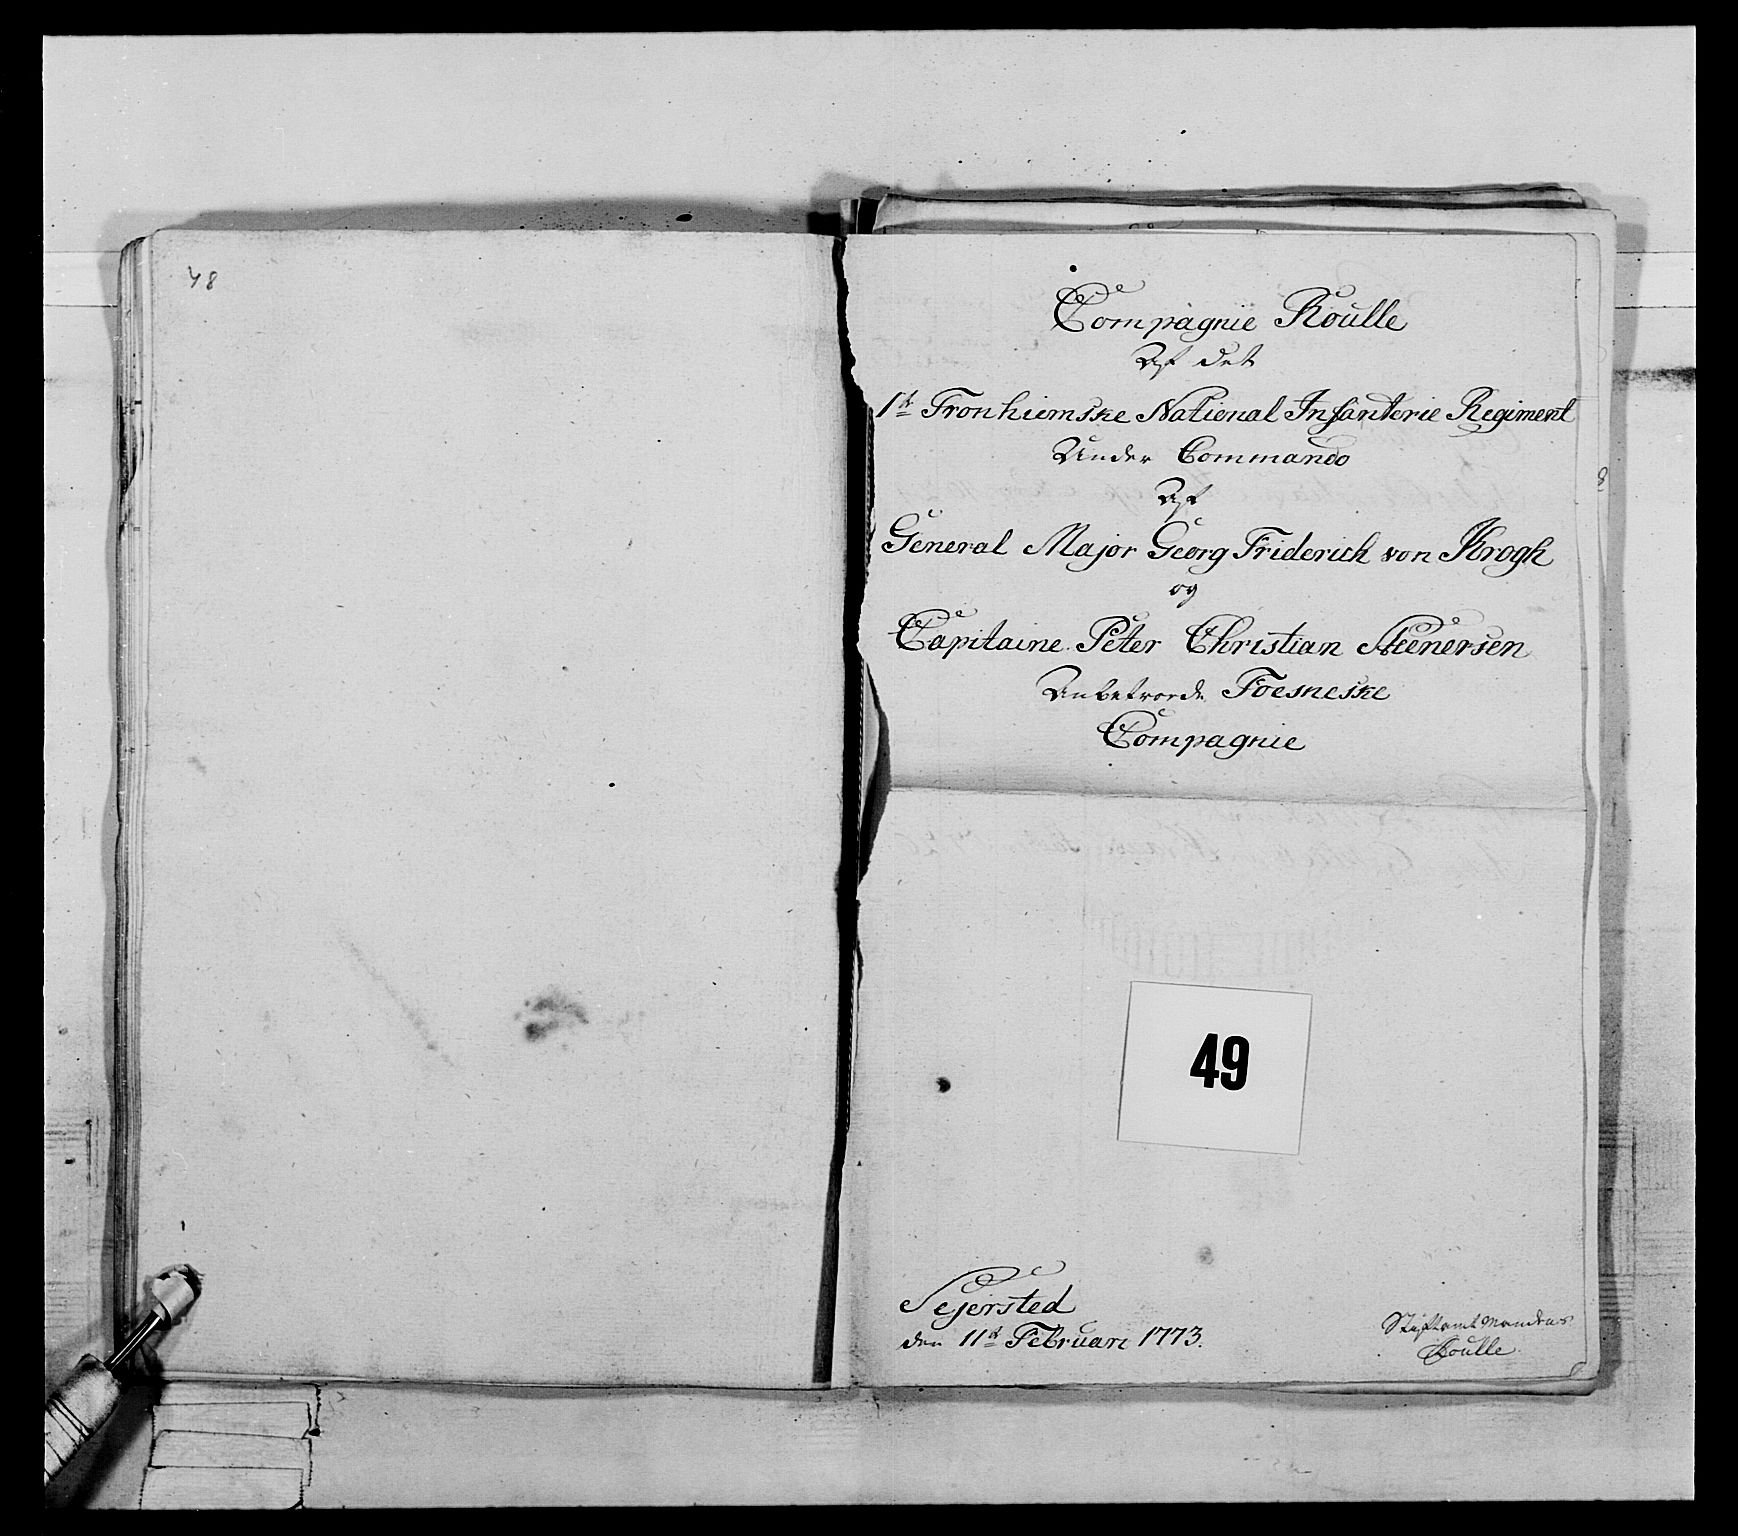 48
Compagnie Roulle
Af det
1te Tronhiemske National Infanterie Regiment
Under Commando
Af
General Major Georg Friderich von Krogh
og
Capitaine Peter Christian Stenersen
Anbetroede Foesneske
Compagnie
49
Sejersted
den 11te Februari 1773.
Roulle